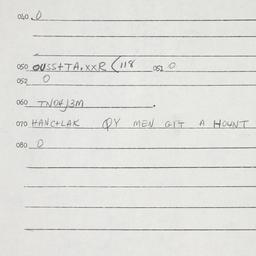 040 0
050 OUSS+TA.XXR (118 051 0
052 0
060 TN04J3M
070 HANC+LAK PY MEN GIT A HOUNT
080 0